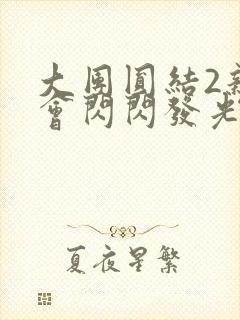 大團圓結2新
會閃閃發光
夏夜星繁